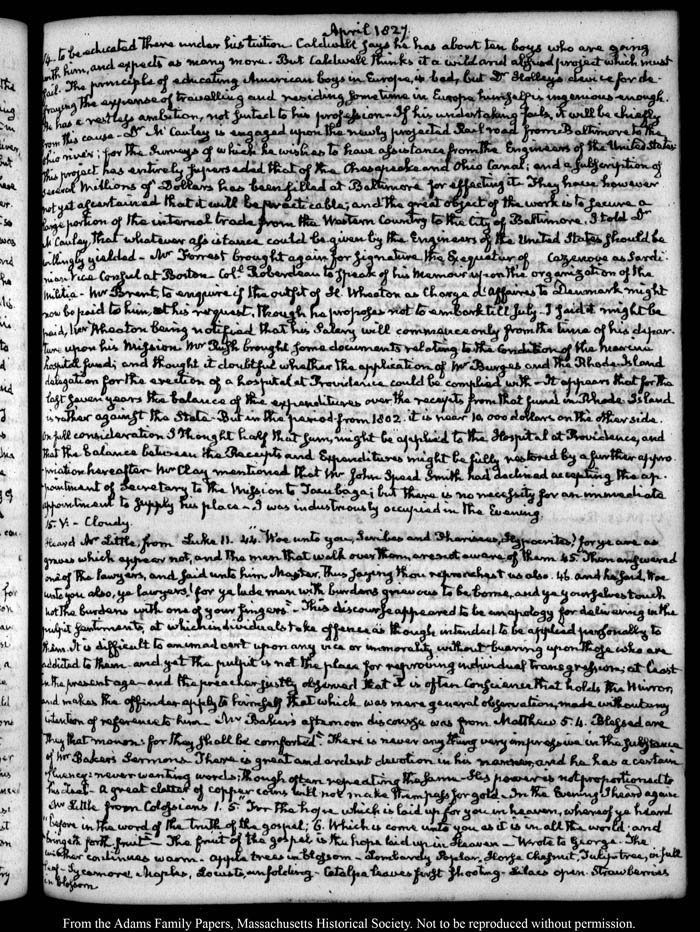 April 1827.
14. to be educated there under his tuition. Caldwell says he has about ten boys who are going
with him, and expects as many more. But Caldwell thinks it a wild and absurd project which must
fail. The principle of educating American boys in Europe, is bad, but Dr. Holley's device for de-
fraying the expense of travelling and residing sometime in Europe himself is ingenious enough.
He has a restless ambition, not suited to his profession. If his undertaking fails, it will be chiefly
from this cause. Dr. McCauley is engaged upon the newly projected Rail road from Baltimore to the
Ohio river: for the Surveys of which he wishes to have assistance from the Engineers of the United States
This project has entirely superseded that of the Chesapeake and Ohio Canal; and a subscription of
several Millions of Dollars has been filled at Baltimore for effecting it. They have however
not yet ascertained that it will be practicable; and the great object of the work is to secure a
large portion of the internal trade from the Western Country to the City of Baltimore. I told Dr.
McCauley, that whatever assistance could be given by the Engineers of the United States should be
willingly yielded. Mr. Forrest brought again for signature the Exequatur of Cazenove as Sardi-
nian Vice Consul at Boston. Coll. Roberdeau to speak of his Memoir upon the organization of the
Militia. Mr. Brent, to enquire if the outfit of H. Wheaton as Chargé d'affaires to Denmark might
now be paid to him, at his request, though he proposes not to embark till July. I said it might be
paid, Mr. Wheaton being notified that his Salary will commence only from the time of his depar-
ture upon his Mission. Mr. Rush brought some documents relating to the condition of the marine
hospital fund; and thought it doubtful whether the application of Mr. Burges and the Rhode-Island
delegation for the erection of a hospital at Providence could be complied with. It appears that for the
last seven years the balance of the expenditures over the receipts from that fund in Rhode Island
is rather against the State. But in the period from 1802. it is near 10.000 dollars on the other side.
On full consideration I thought half that sum, might be applied to the Hospital at Providence, and
that the balance between the Receipts and Expenditures might be fully restored by a further appro-
priation hereafter. Mr. Clay mentioned that Mr. John Speed Smith had declined accepting the ap-
pointment of Secretary to the Mission to Tacubaya; but there is no necessity for an immediate
appointment to supply his place. I was industriously occupied in the Evening.
15. V: - Cloudy.
Heard Mr. Little, from Luke 11. 44. "Woe unto you, Scribes and Pharisees, Hypocrites! for ye are as
graves which appear not, and the men that walk over them, are not aware of them. 45. Then answered
one of the lawyers, and said unto him Master, thus saying thou reproachest us also. 46. and he said, Woe
unto you also, ye lawyers! for ye lade men with burdens grievous to be borne, and ye yourselves touch
not the burdens with one of your fingers." This discourse appeared to be an apology for delivering in the
pulpit sentiments, at which individuals take offence as though intended to be applied personally to
them. It is difficult to animadvert upon any vice or immorality without bearing upon those who are
addicted to them. and yet the pulpit is not the place for reproving individual transgression; at least
in the present age. and the preacher justly observed that it is often Conscience that holds the Mirror,
and makes the offender apply to himself that which was mere general observation, made without any
intention of reference to him. Mr. Baker's afternoon discourse was from Matthew 5. 4. "Blessed are
they that mourn: for they shall be comforted." There is never any thing very impressive in the substance
of Mr. Baker's Sermons. There is great and ardent devotion in his manner, and he has a certain
fluency: never wanting words; though often repeating the same. His power is not proportioned to
his zeal. A great clatter of copper coins will not make them pass for gold. In the Evening I heard again
Mr. Little from Colossians 1. 5. "For the hope which is laid up for you in heaven, whereof ye heard
before in the word of the truth of the gospel; 6. Which is come unto you as it is in all the world: and
bringeth forth fruit" - The fruit of the gospel is the hope laid up in Heaven - Wrote to George. The
weather continues warm. apple trees in blossom - Lombardy Poplar, Horse Chesnut, Tulip-tree, in full
leaf - Sycamore, Maples, Locusts, unfolding - Catalpa leaves first shooting - Lilacs open. Strawberries
in blossom
From the Adams Family Papers, Massachusetts Historical Society. Not to be reproduced without permission.